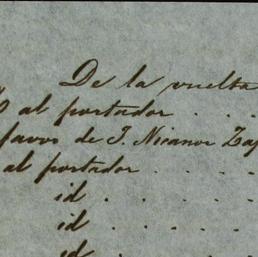 De la vuelta
al portador . . .
favor de J. Nicanor Zap
al portador . . . . .
id . . . . .
id . . . . .
id . . . . .